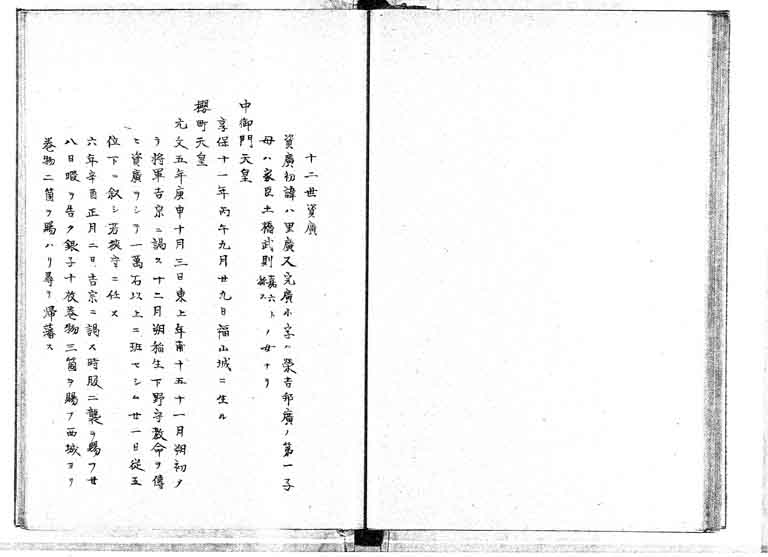 十二世資廣
資廣初諱ハ里廣又完廣小字ハ榮吉邦廣ノ第一子
母ハ家臣土橋武則嘉六ト稱スノ女ナリ
中御門天皇
享保十一年丙午九月廿九日福山城ニ生ル
櫻町天皇
元文五年庚申十月三日東上年甫十五十一月朔初メ
テ將軍吉宗ニ謁ス十二月朔稲生下野守教命ヲ傳
ヒ資廣ヲシテ一萬石以上ニ班セシム廿一日從五
位下ニ叙シ若狹守ニ任ス
六年辛酉正月二日吉宗ニ謁ス時服二襲ヲ賜フ廿
八日暇ヲ告ク銀子十枚巻物三箇ヲ賜フ西城ヨリ
巻物二箇ヲ賜ハリ尋テ帰藩ス